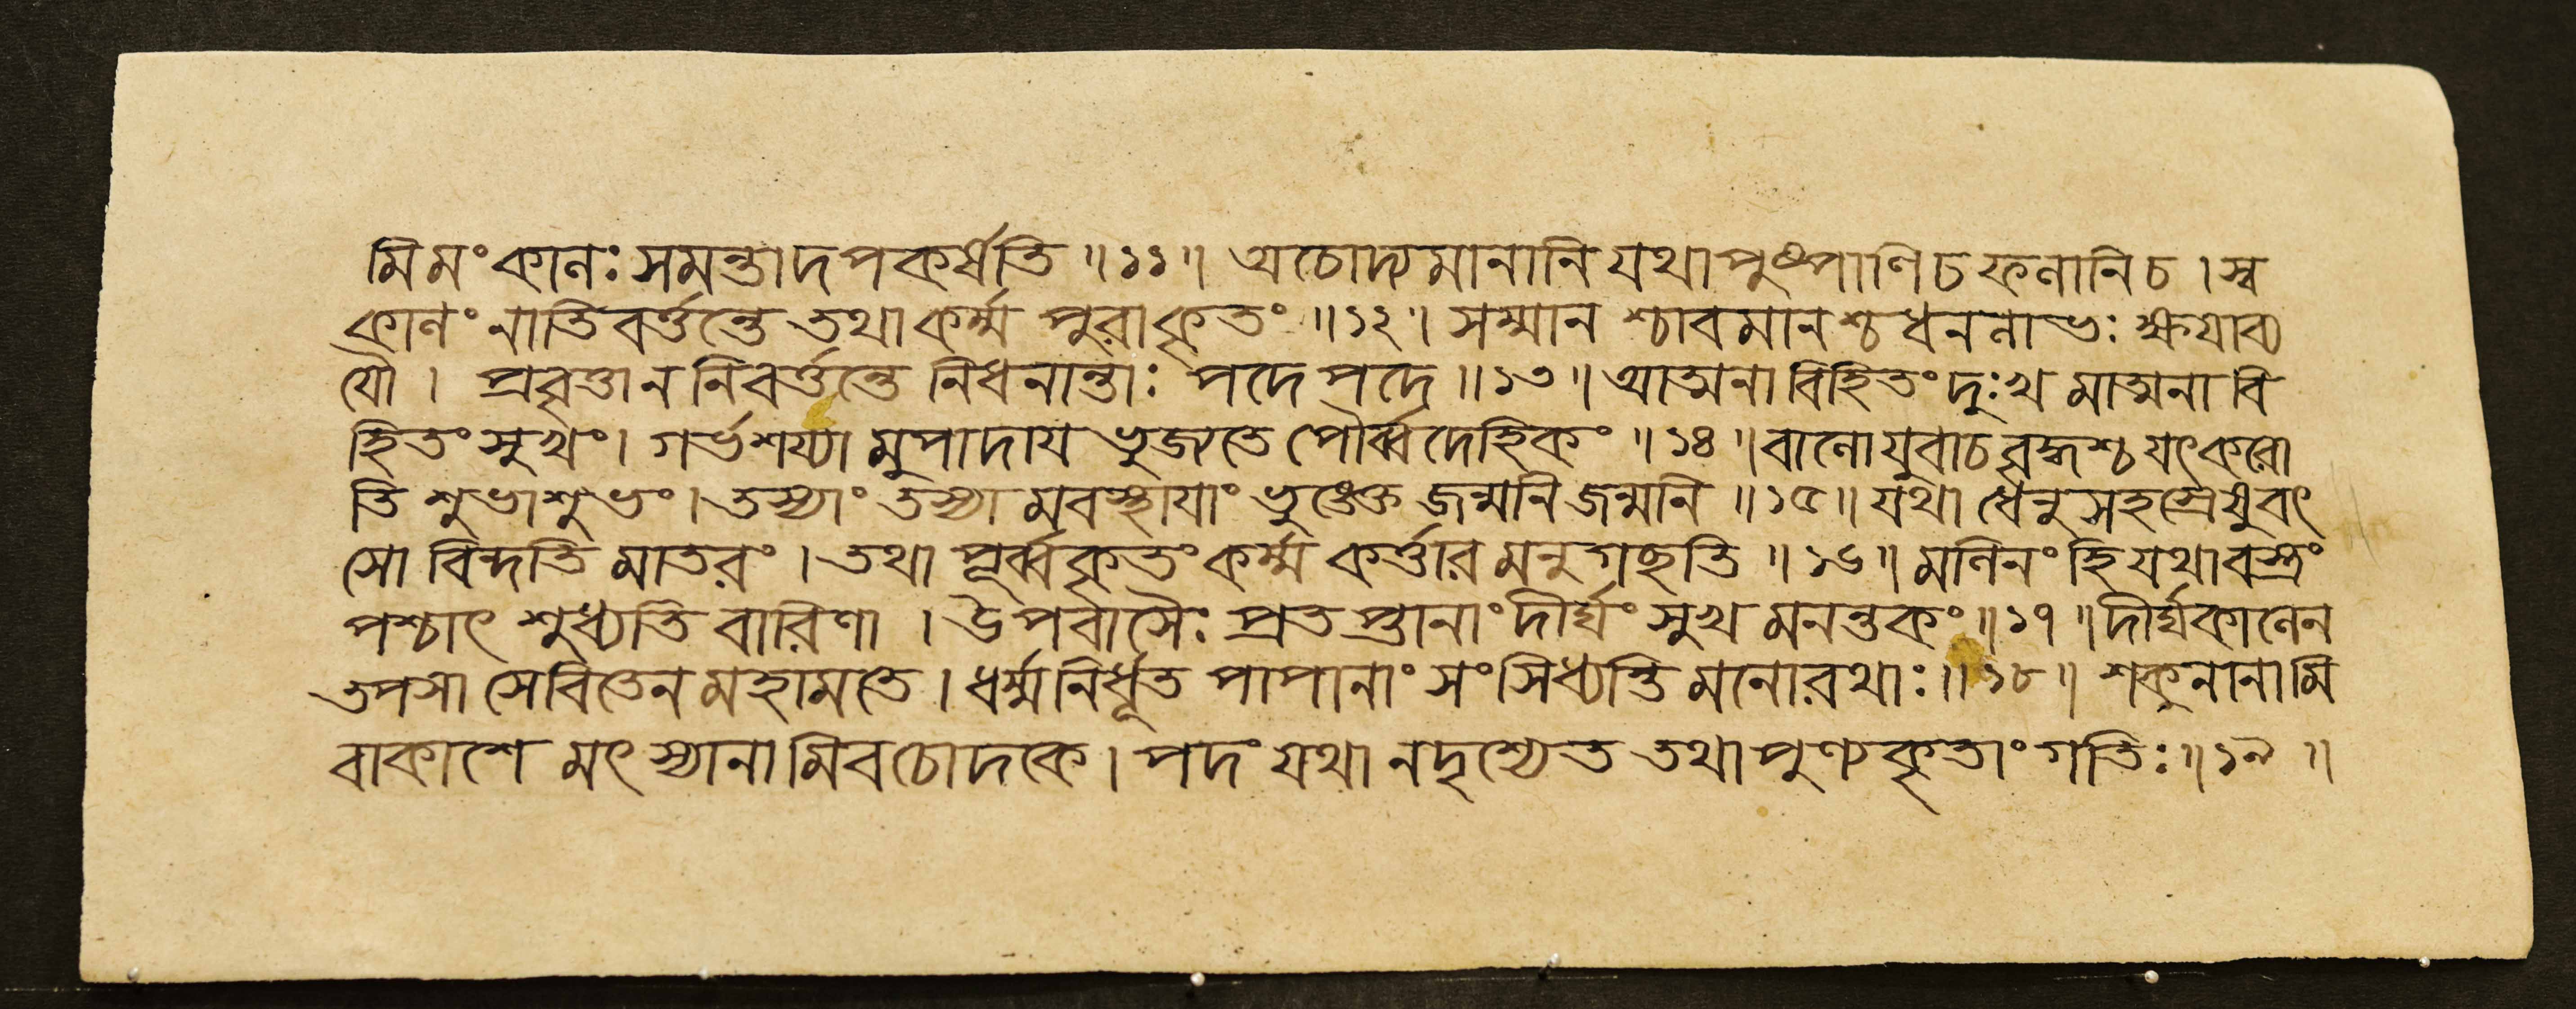 মিমং কালঃ সমন্তাদপকর্ষতি ॥১১॥ অচোদ্যমানানি যথা পুষ্পাণি চ ফলানি চ । স্ব
কালং নাতিবর্ত্তন্তে তথা কর্ম্ম পুরাকৃতং ॥১২॥ সম্মান শ্চাবমানশ্চ ধনলাভঃ ক্ষয়াব্য
যৌ । প্রবৃত্তা ন নিবর্ত্তন্তে নিধনান্তাঃ পদে পদে ॥১৩॥ আত্মনা বিহিতং দুঃখ মাত্মনা বি
হিতং সুখং । গর্ভশয্যা মুপাদায ভুজ্যতে পৌর্ব্বদেহিকং ॥১৪॥ বালো যুবা চ বৃদ্ধশ্চ যৎ করো
তি শুভাশুভং । তস্যাং তস্যা মবস্থাযাং ভুঙেক্ত জন্মনি জন্মনি ॥১৫॥ যথা ধেনু সহস্রেষু বৎ
সো বিন্দতি মাতরং । তথা পূর্ব্বকৃতং কর্ম্ম কর্ত্তার মনুগছতি ॥১৬॥ মলিনং হি যথা বস্ত্রং
পশ্চাৎ শুধ্যতি বারিণা । উপবাসৈঃ প্রতপ্তানাং দীর্ঘং সুখ মনন্তকং ॥১৭॥ দীর্ঘকালেন
তপসা সেবিতেন মহামতে । ধর্ম্মনির্ধূত পাপানাং সংসিধ্যন্তি মনোরথাঃ ॥১৮॥ শকুনানামি
বাকাশে মৎস্যানামিব চোদকে । পদং যথা ন দৃশ্যেত তথা পুণ্যকৃতাং গতিঃ ॥১৯॥